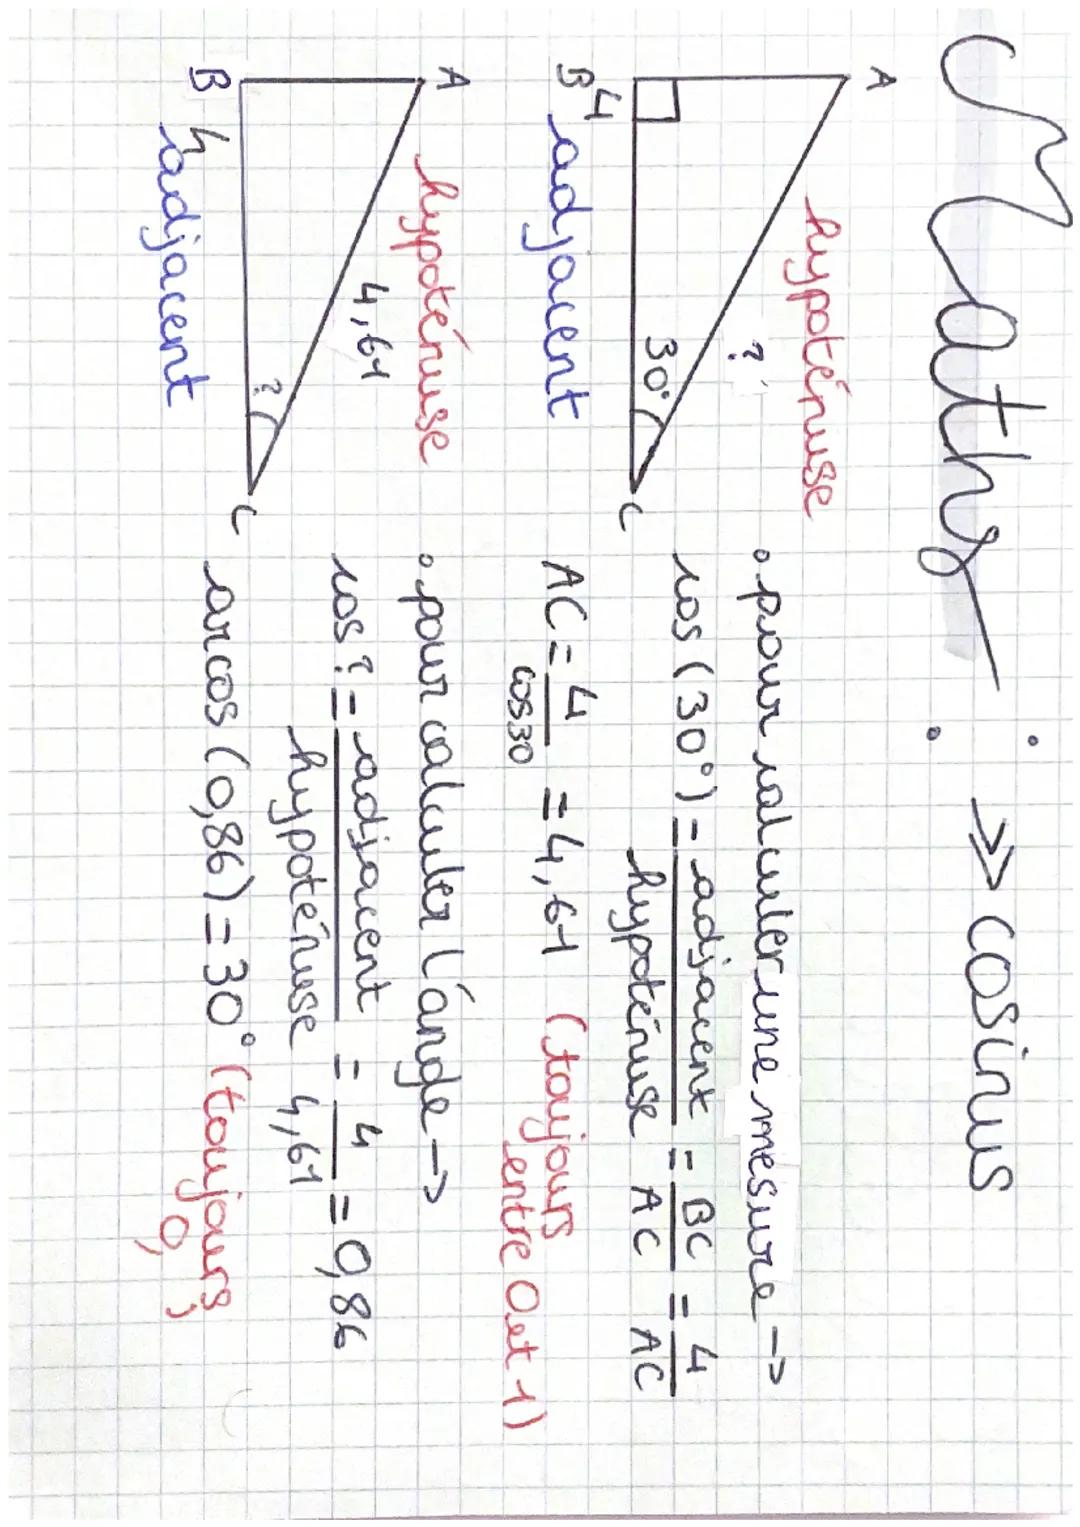 Maths : ->> cosinus
A
hypoténuse
?
30°
B
4
adjacent
C
• pour calculer une mesure ->
cos (30°) = adjacent / hypoténuse = BC / AC = 4 / AC
AC = 4 / cos 30 = 4,61 (toujours
entre 0 et 1)
A
hypoténuse
4,61
?
B
4
adjacent
C
• pour calculer l'angle ->
cos ? = adjacent / hypoténuse = 4 / 4,61 = 0,86
arcos (0,86) = 30° (toujours
0,)